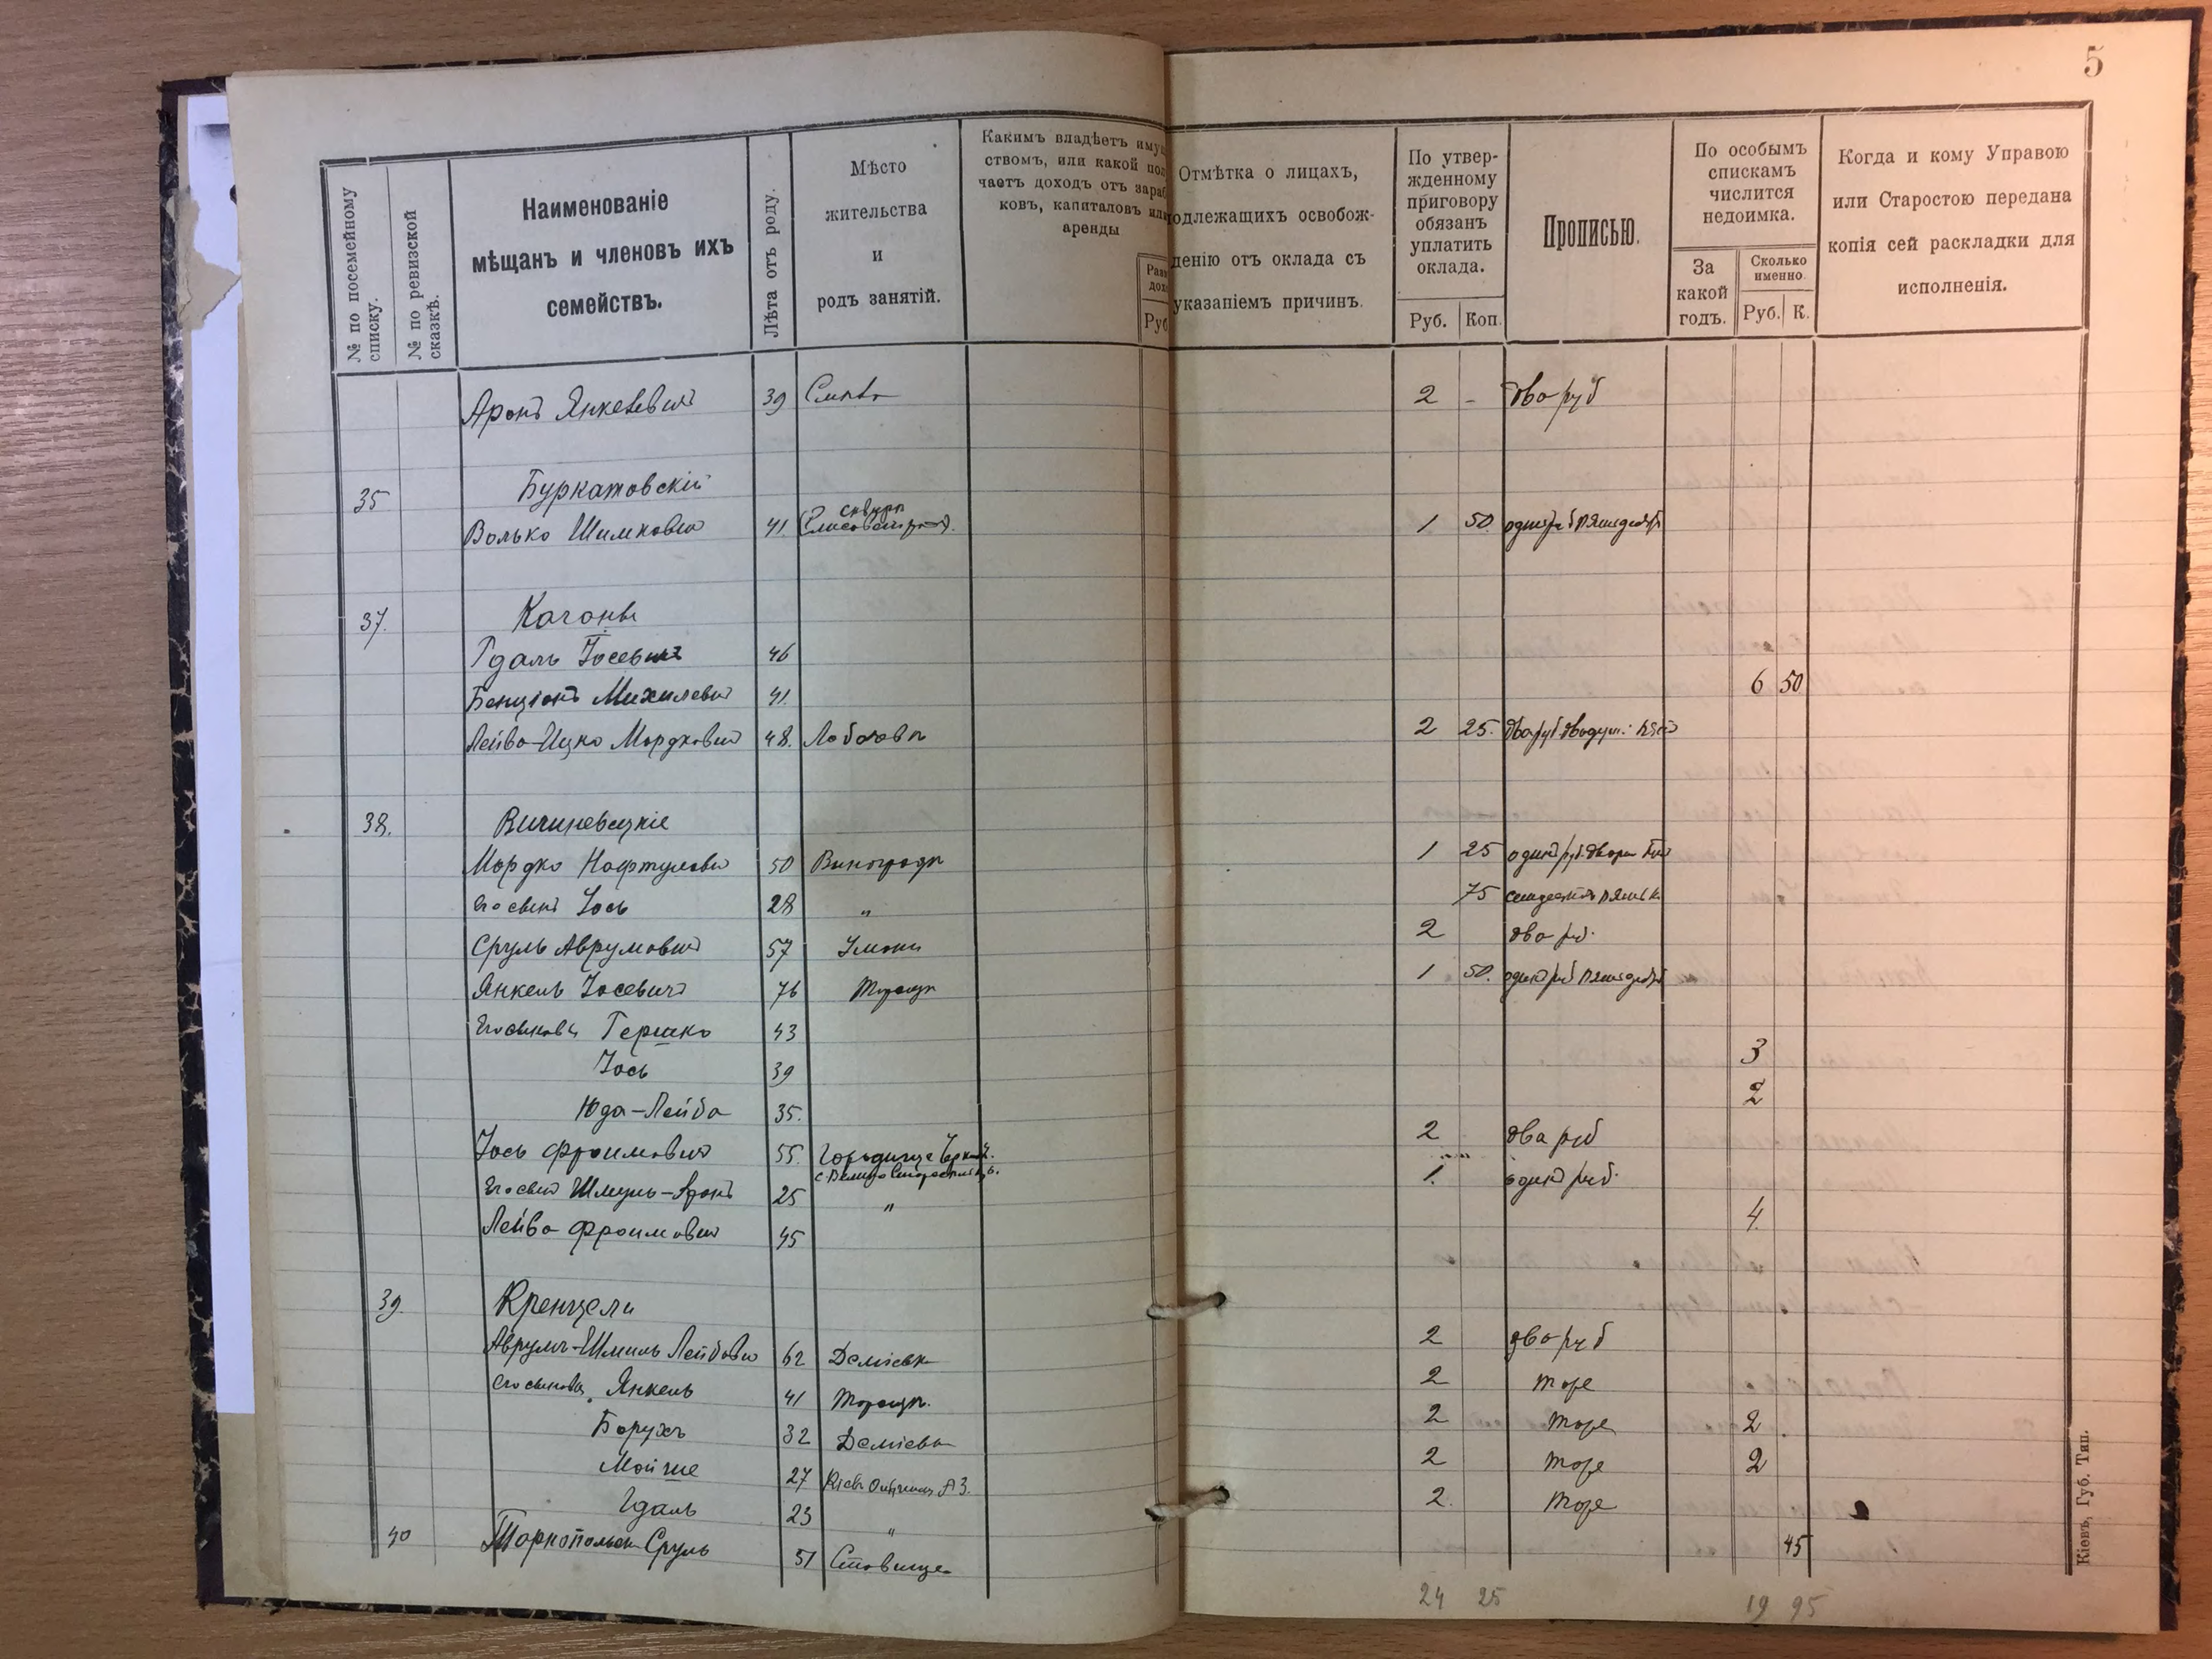 5
№ по посемейному списку.
№ по ревизской сказкѣ.
Наименованіе
мѣщанъ и членовъ ихъ
семействъ.
Лѣта отъ роду.
Мѣсто
жительства
и
родъ занятій.
Какимъ владѣетъ иму
ствомъ, или какой пол
чаетъ доходъ отъ зараб
ковъ, капиталовъ или
аренды
Руб
Отмѣтка о лицахъ,
одлежащихъ освобож-
денію отъ оклада съ
указаніемъ причинъ.
По утвер-
жденному
приговору
обязанъ
уплатить
оклада.
Руб. Коп.
Прописью.
По особымъ
спискамъ
числится
недоимка.
За
какой
годъ.
Сколько
именно.
Руб. К.
Когда и кому Управою
или Старостою передана
копія сей раскладки для
исполненія.
Аронъ Янкелевичъ 39 2 - два руб
35 Буркатовскій
Волько Шимковичъ 41. 1 50.
37. Каганы
Гдаль Іосевичъ 46
Бенціонъ Михилевичъ 41. 6 50
Лейба-Ицко Мордковичъ 48. 2 25.
38. Вишневецкіе
Мордко Нафтуловичъ 50 Виноградъ 1 25
его сынъ Іось 28 " 75 семдесятъ пять к.
Сруль Аврумовичъ 57 Умань 2 два руб.
Янкель Іосевичъ 76 Таращ 1 50.
Его сыновья Гершко 43 3
Іось 39 2
Юда-Лейба 35.
Іось Фроимовичъ 55. Городище 2 два руб
Его сынъ Шмуль-Аронъ 25 " 1. одинъ руб.
Лейба Фроимовичъ 45 4.
39. Кренцели
Аврумъ-Шмиль Лейбовичъ 62 Деміевк 2 два руб
его сыновья Янкель 41 Таращ. 2 тоже
Борухъ 32 Деміевк 2 тоже 2
Мойше 27 Кіевъ 2 тоже 2
Гдаль 23 " 2. тоже
40 Сруль 51 Ставище 45
24 25 19 95
Кіевъ, Губ. Тип.